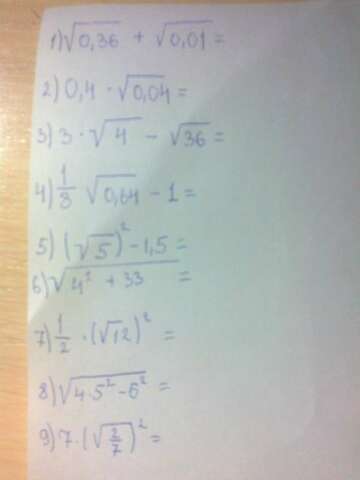 1) √0,36 + √0,01 =
2) 0,4 · √0,04 =
3) 3 · √4 - √36 =
4) 1/8 √0,64 - 1 =
5) (√5)² - 1,5 =
6) √4² + 33 =
7) 1/2 · (√12)² =
8) √4·5² - 6² =
9) 7 · (√2/7)² =